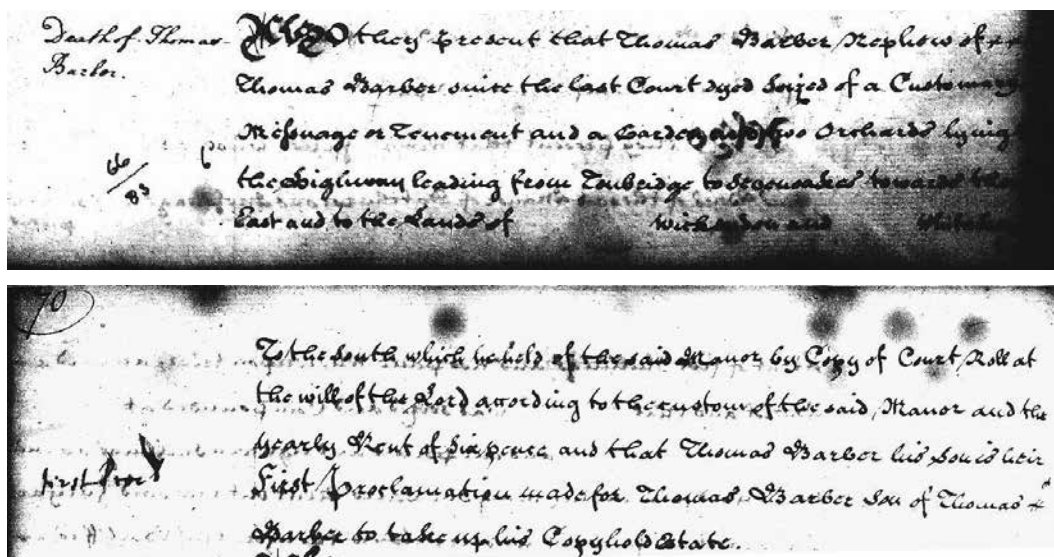 Death of Thomas
Barber.
Also they present that Thomas Barber Nephew of
Thomas Barber since the last Court dyed Seized of a Customary
Messuage or Tenement and a Garden and two Orchards lying
the Highway leading from Tonbridge to Sevenoakes towards the
East and to the Lands of Wickenden and
66
83
6
70
To the South which he held of the said Manor by Copy of Court Roll at
the will of the Lord according to the custom of the said Manor and the
yearly Rent of Six pence and that Thomas Barber his Son is heir
First Proc
First Proclamation made for Thomas Barber Son of Thomas
Barber to take up his Copyhold Estate.